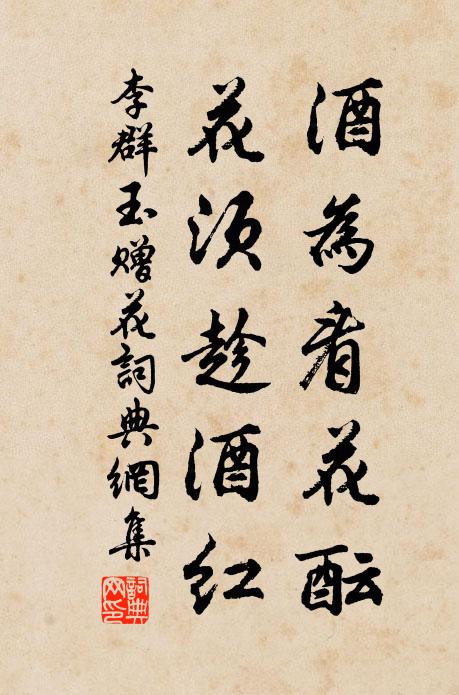 酒為看花酝
花須趁酒紅
李群玉贈花詞典網集
詞典网印